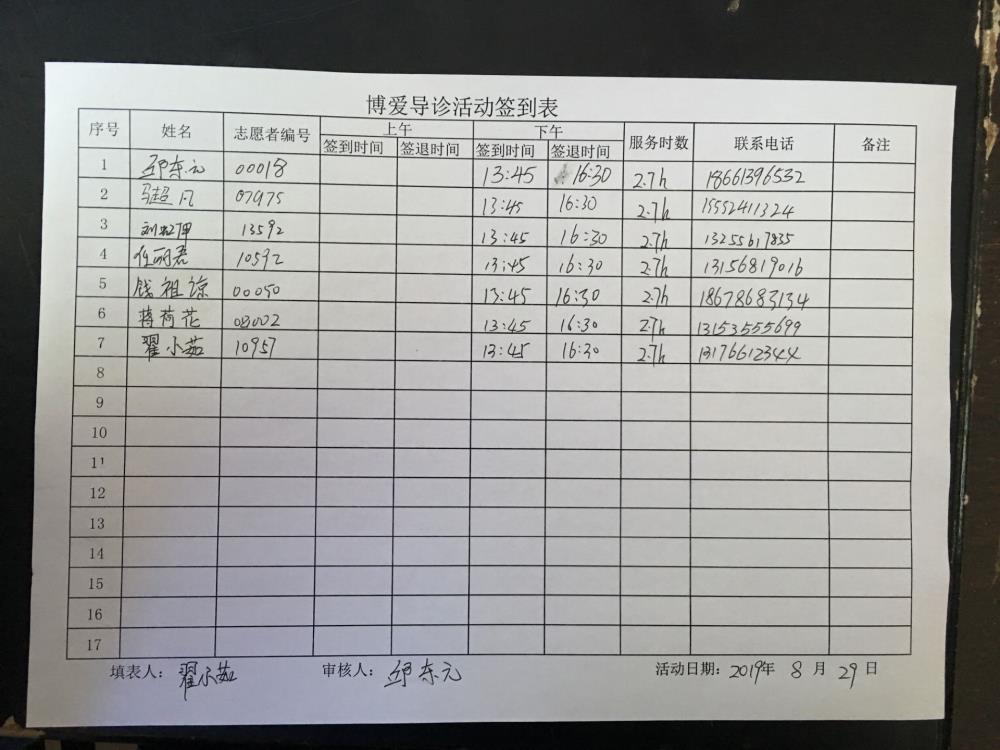 博爱导诊活动签到表
序号 姓名 志愿者编号 上午 下午 服务时数 联系电话 备注
签到时间 签退时间 签到时间 签退时间
1 邱东元 00018 13:45 16:30 2.7h 18661396532
2 马超凡 07975 13:45 16:30 2.7h 15552411324
3 13592 13:45 16:30 2.7h 13255617835
4 任丽君 10592 13:45 16:30 2.7h 13156819016
5 钱祖谅 00050 13:45 16:30 2.7h 18678683134
6 蒋荷花 03002 13:45 16:30 2.7h 13153555699
7 翟小茹 10957 13:45 16:30 2.7h 13176612344
8
9
10
11
12
13
14
15
16
17
填表人: 翟小茹 审核人: 邱东元 活动日期: 2019年 8 月 29 日